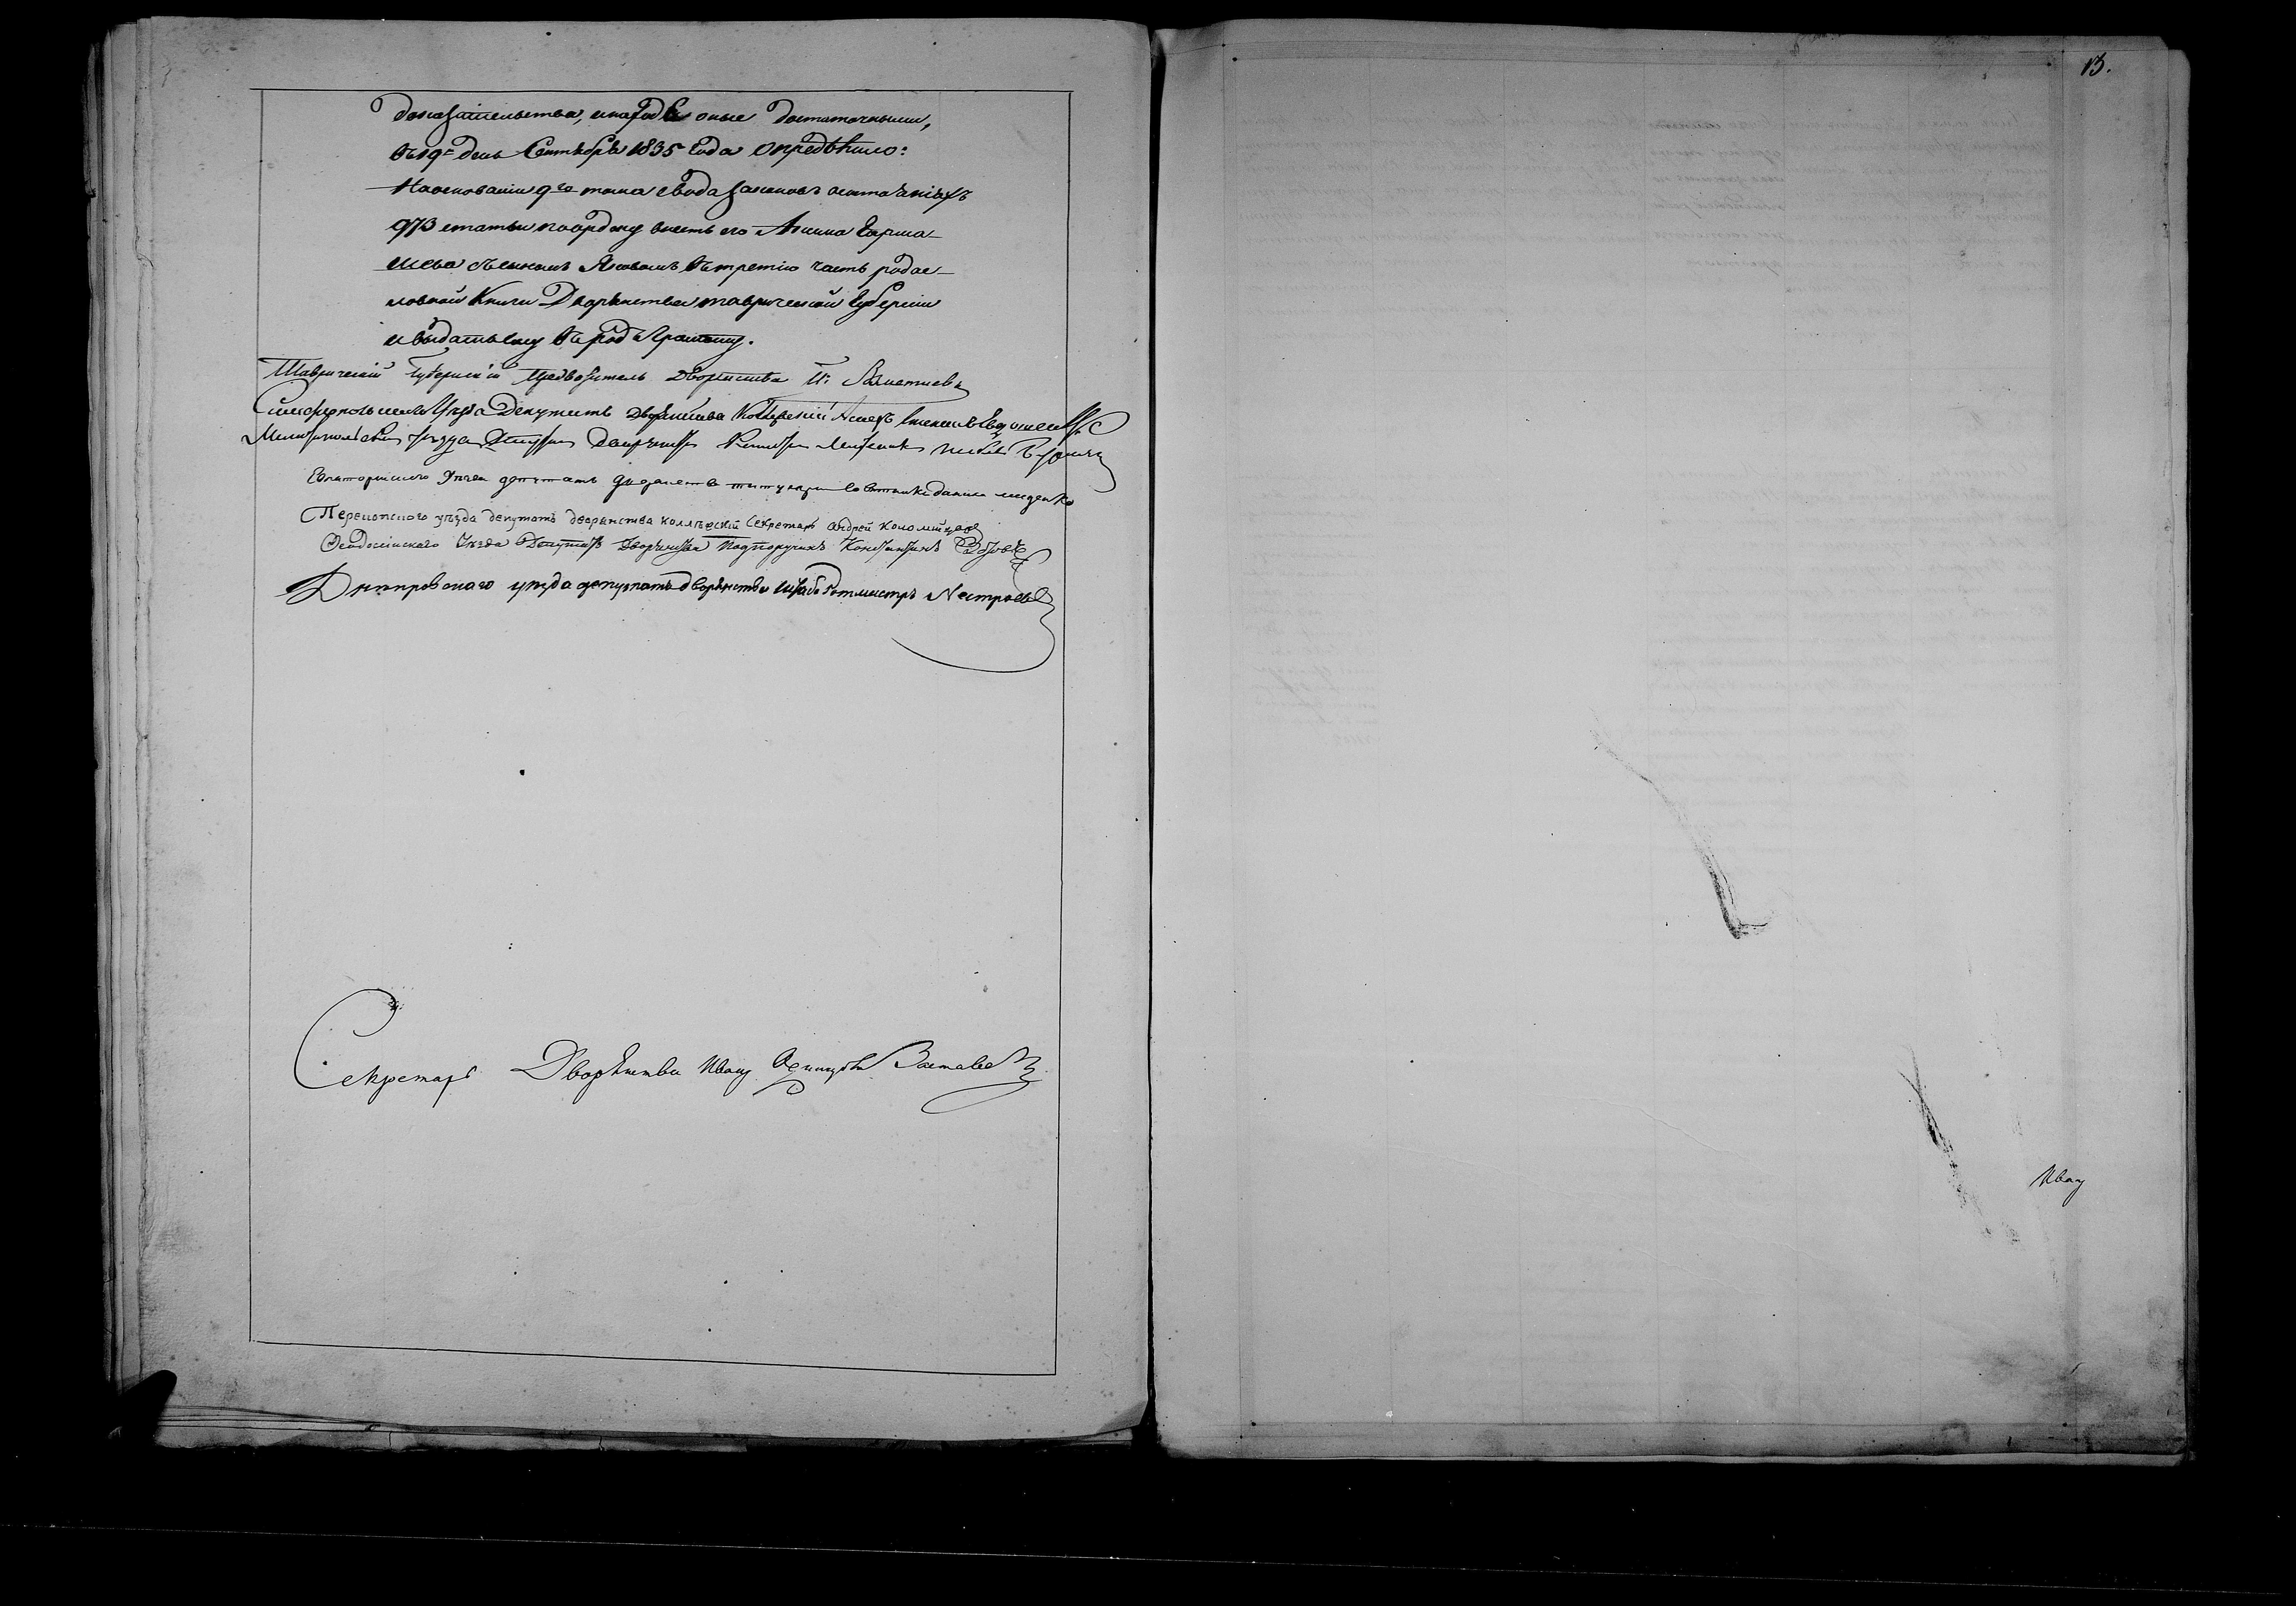 доказательства, инайдя оные достаточными,
въ 19 = день Сентября 1835 Года опредѣлило:
На основаніи 9го тома свода Законовъ о состояніяхъ
973 статьи по ордену внесть его Акима Гарма-
шева съ сыномъ Яковомъ въ третію часть родос-
ловной Книги Дворянства таврической Губерніи
и выдать ему въ родъ Грамоту.
Таврическій Губернскій Предводитель Дворянства
Симферопольскаго Уѣзда Депутатъ Дворянства
Мелитопольскаго уѣзда Депутатъ Дворянства
Евпаторійского Уѣзда депутатъ дворянства титулярн. Совѣтникъ
Перекопского уѣзда депутатъ дворянства коллежскій Секретарь Андрей Коломійцовъ
Феодосійскаго Уѣзда Депутатъ Дворянства Подпоручикъ Константинъ
Днѣпровскаго уѣзда депутатъ дворянства Штабсъ Ротмистръ
Секретарь Дворянства Иван
13.
Иван